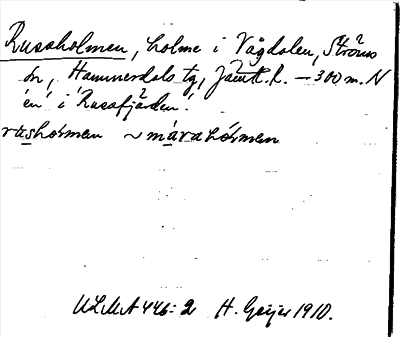 Russholmen, holme i Vågdalen, Ströms
sn, Hammerdals tg, Jämtl. l. — 300 m. N
en i Russfjärden.
rusholmen ~ märaholmen
ULMA 446:2 H. Geijer 1910.